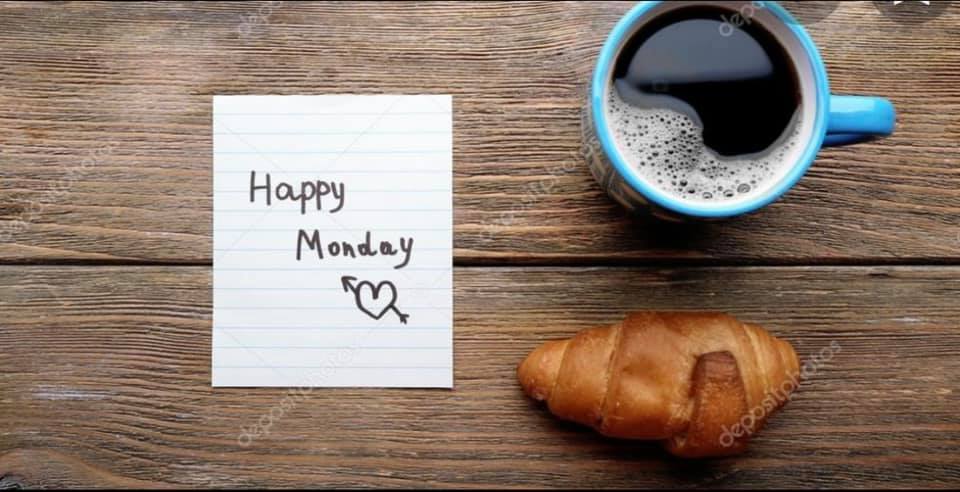 Happy
Monday
depositphotos
depositphotos
depositphotos
depositphotos